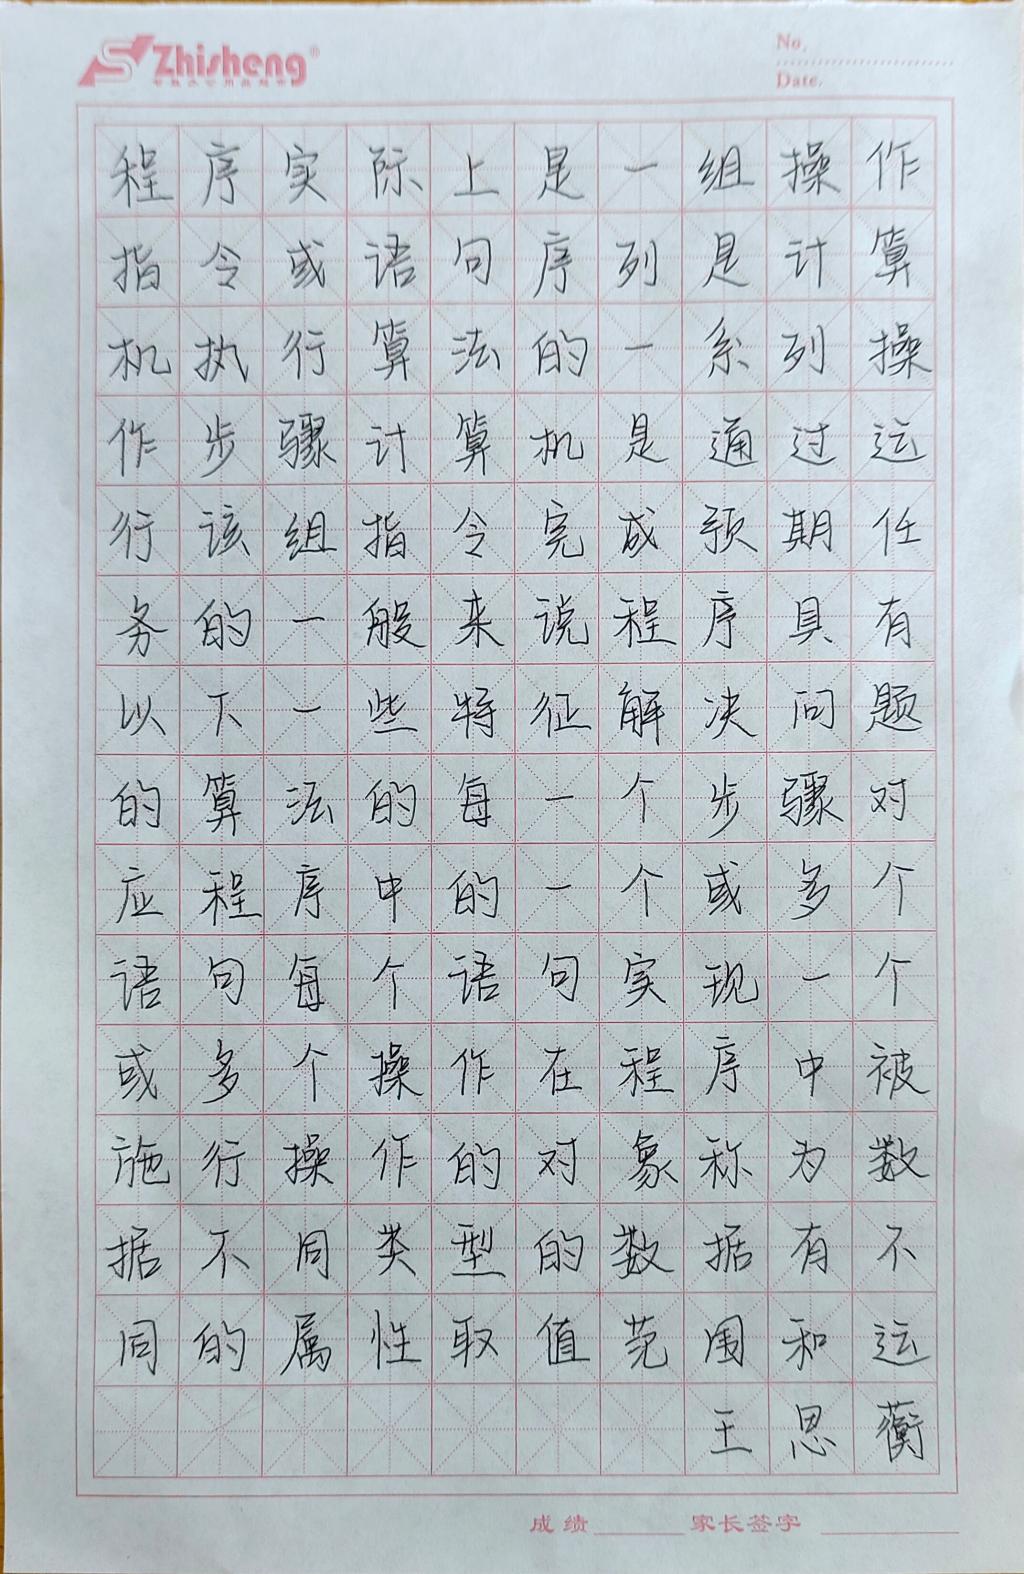 Zhisheng®
No.
Date.
程序实际上是一组操作
指令或语句序列是计算
机执行算法的一系列操
作步骤计算机是通过运
行该组指令完成预期任
务的一般来说程序具有
以下一些特征解决问题
的算法的每一个步骤对
应程序中的一个或多个
语句每个语句实现一个
或多个操作在程序中被
施行操作的对象称为数
据不同类型的数据有不
同的属性取值范围和运
王思蘅
成绩 家长签字